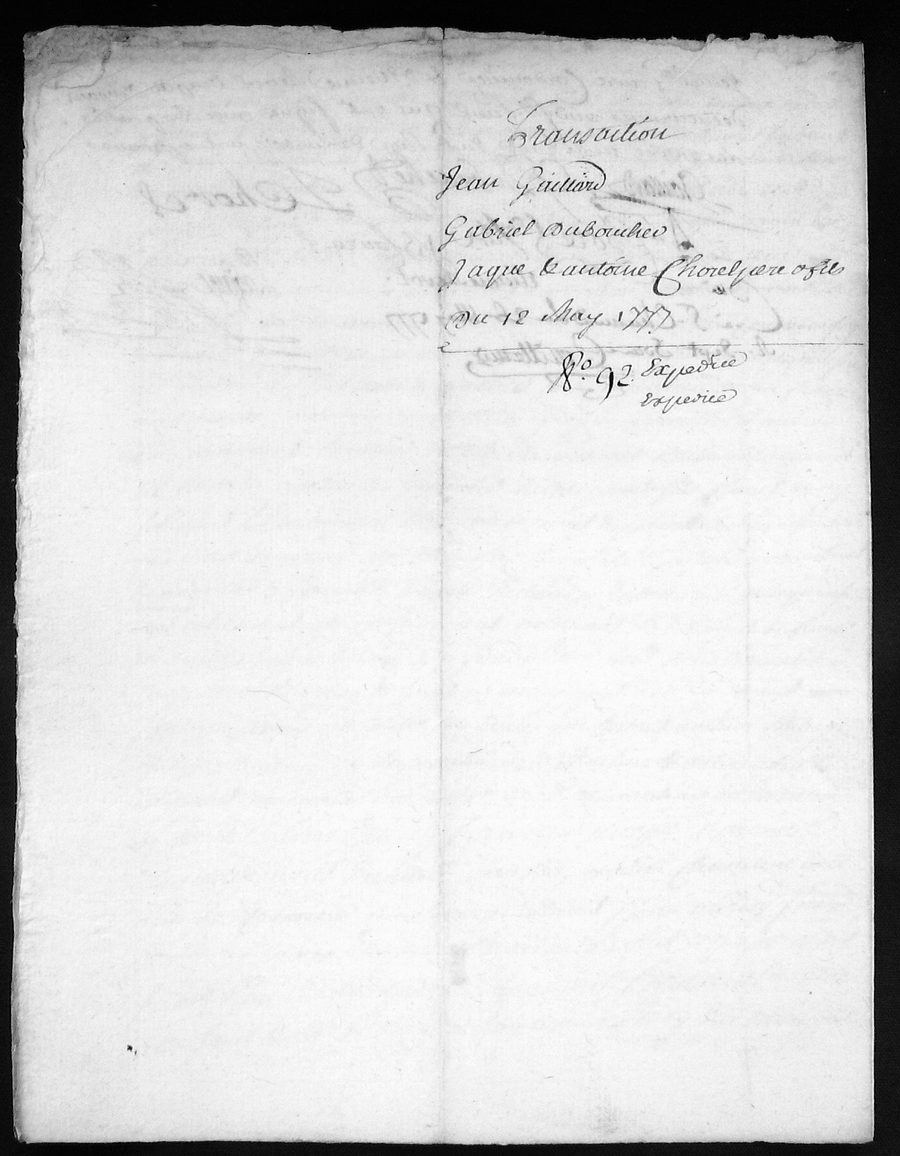 Transaction
Jean Gailliard
Gabriel Duboucher
Jaque & antoine Chorel pere & fils
Du 12 May 1777
No. 92. Expediée
Expediée